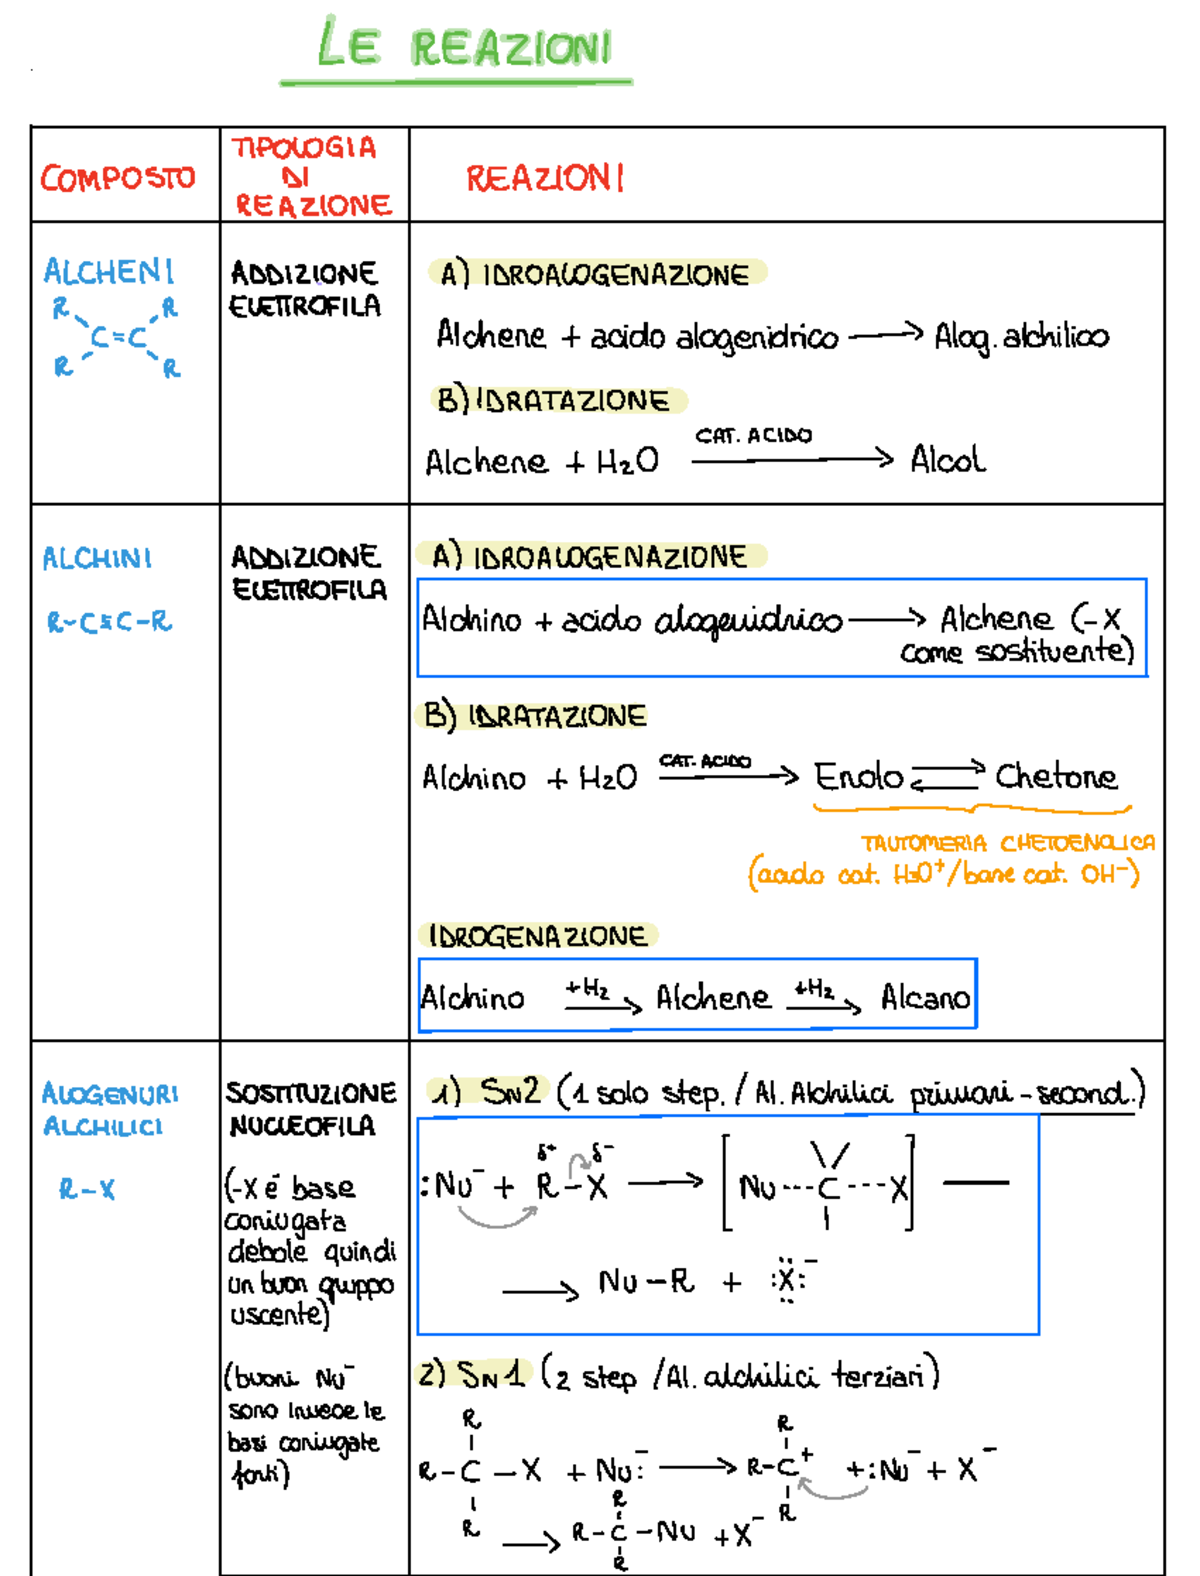 LE REAZIONI
COMPOSTO
TIPOLOGIA
DI
REAZIONE
REAZIONI
ALCHENI
R R
C=C
R R
ADDIZIONE
ELETTROFILA
A) IDROALOGENAZIONE
Alchene + acido alogenidrico ⟶ Alog. alchilico
B) IDRATAZIONE
CAT. ACIDO
Alchene + H₂O ⟶ Alcol
ALCHINI
R-C≡C-R
ADDIZIONE
ELETTROFILA
A) IDROALOGENAZIONE
Alchino + acido alogenidrico ⟶ Alchene (-X
come sostituente)
B) IDRATAZIONE
CAT. ACIDO
Alchino + H₂O ⟶ Enolo ⇌ Chetone
TAUTOMERIA CHETOENOLICA
(acido cat. H₃O⁺/base cat. OH⁻)
IDROGENAZIONE
+H₂ +H₂
Alchino ⟶ Alchene ⟶ Alcano
ALOGENURI
ALCHILICI
R-X
SOSTITUZIONE
NUCLEOFILA
(-X è base
coniugata
debole quindi
un buon gruppo
uscente)
(buoni Nu⁻
sono invece le
basi coniugate
forti)
1) SN2 (1 solo step. / Al. Alchilici primari-second.)
δ+ δ-
:Nu⁻ + R-X ⟶ [Nu---C---X]
⟶ Nu-R + :X:⁻
2) SN1 (2 step /Al. alchilici terziari)
R R
R-C-X + Nu:⁻ ⟶ R-C⁺ +:Nu⁻ + X⁻
R R
R
⟶ R-C-Nu +X⁻
R